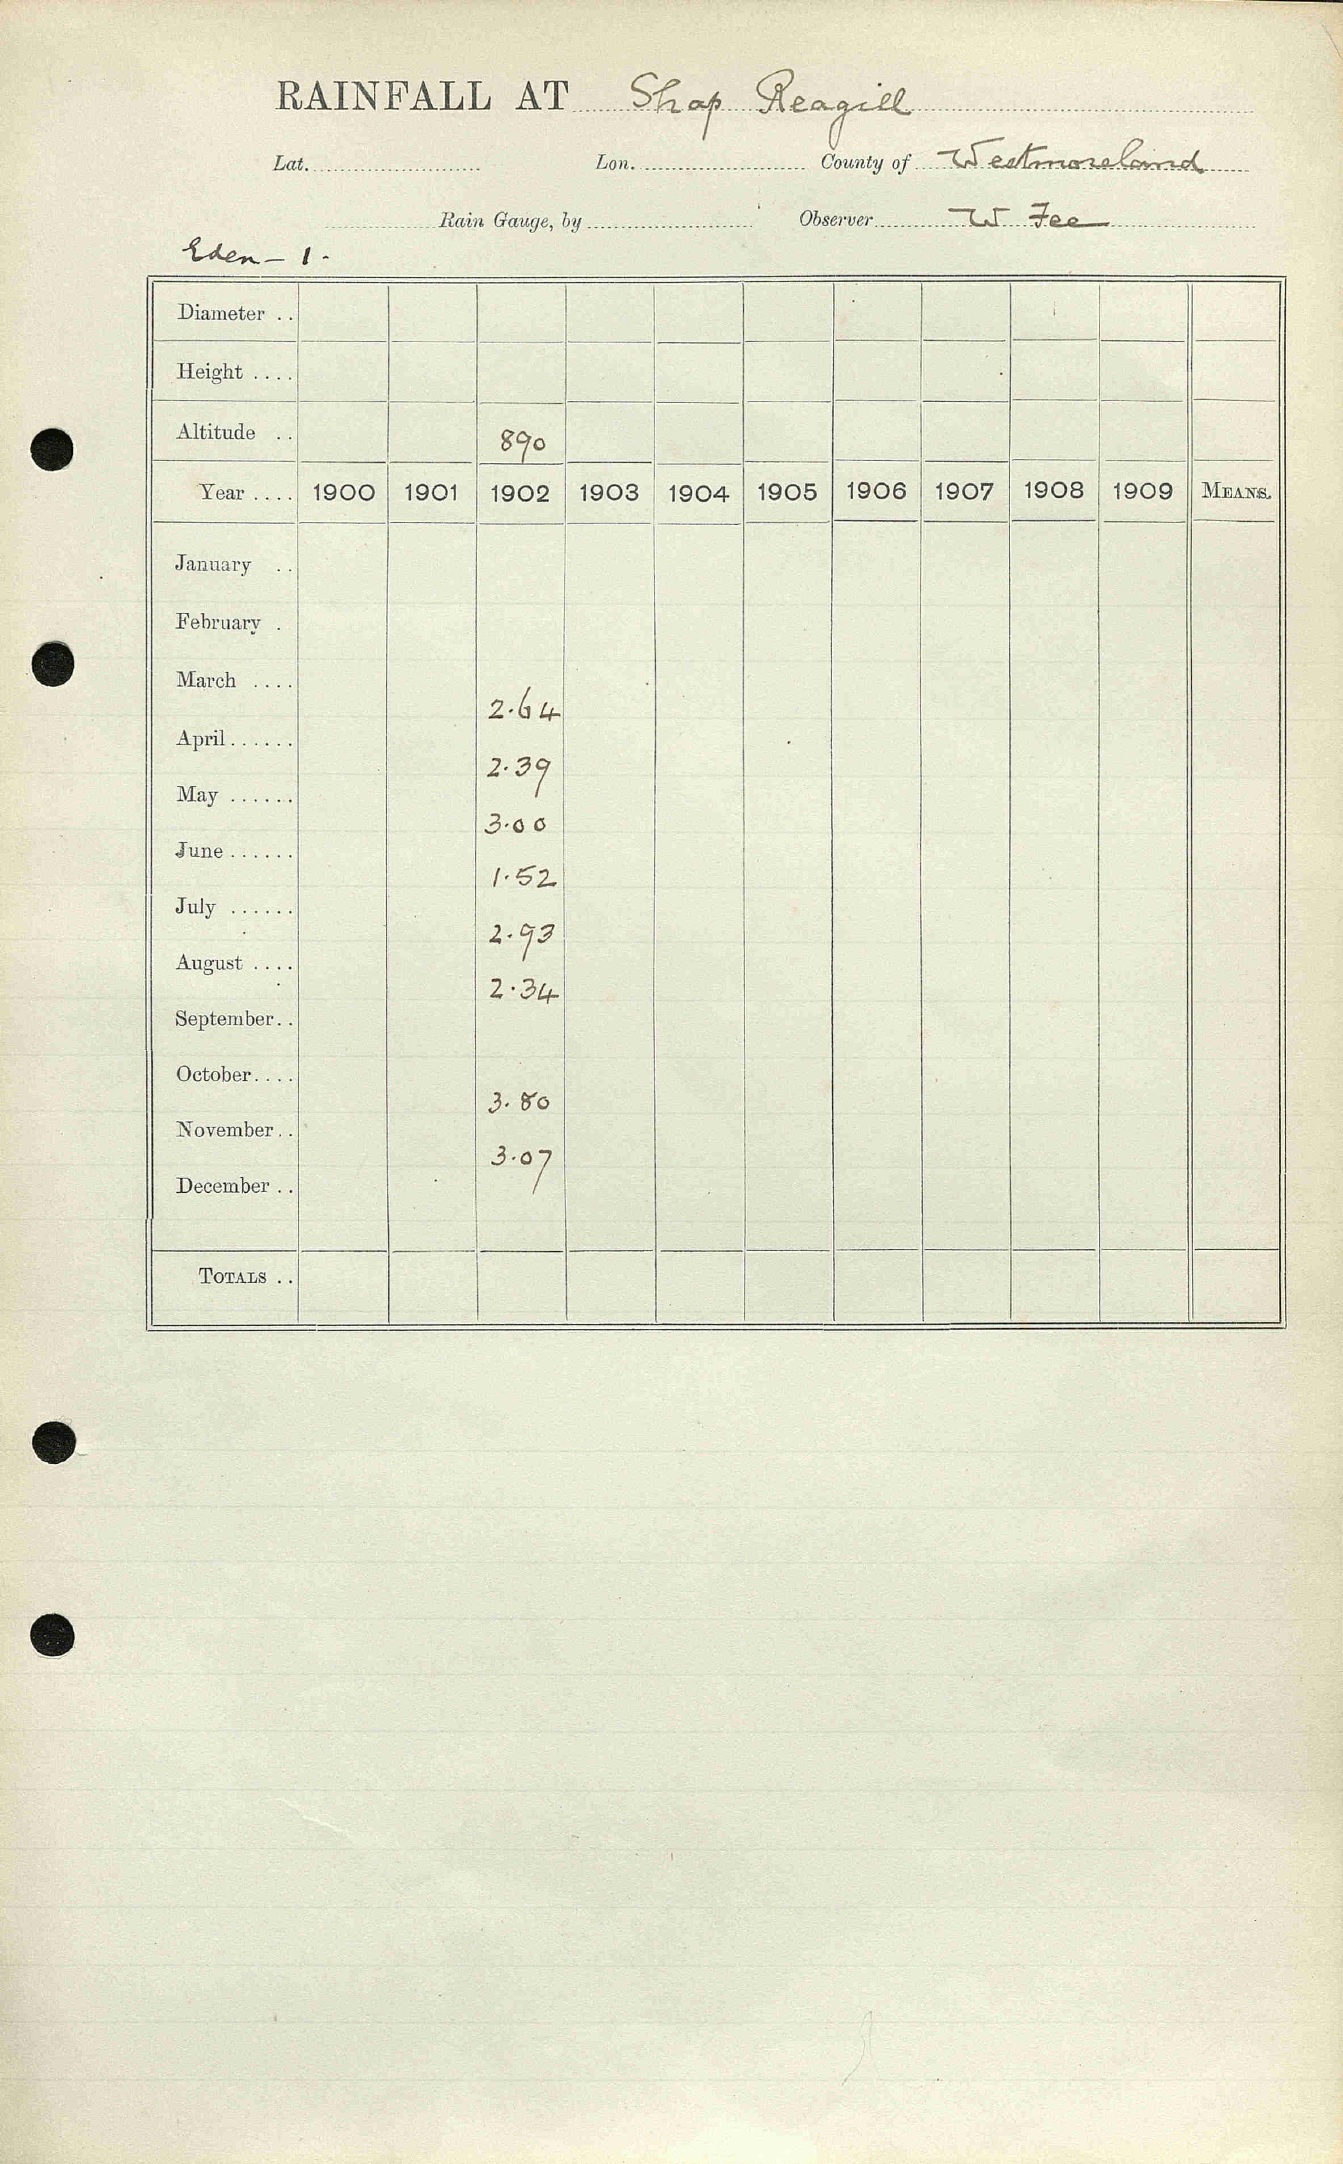 RAINFALL AT Shap Reagill
Lat. Lon. County of Westmoreland
Rain Gauge, by Observer W Fee
Eden - 1 -
Diameter ..
Height ....
Altitude .. 890
Year .... 1900 1901 1902 1903 1904 1905 1906 1907 1908 1909 MEANS.
January ..
February .
March ....
2.64
April ......
2.39
May ......
3.00
June ......
1.52
July ......
2.93
August ....
2.34
September..
October....
3.80
November..
3.07
December ..
TOTALS ..